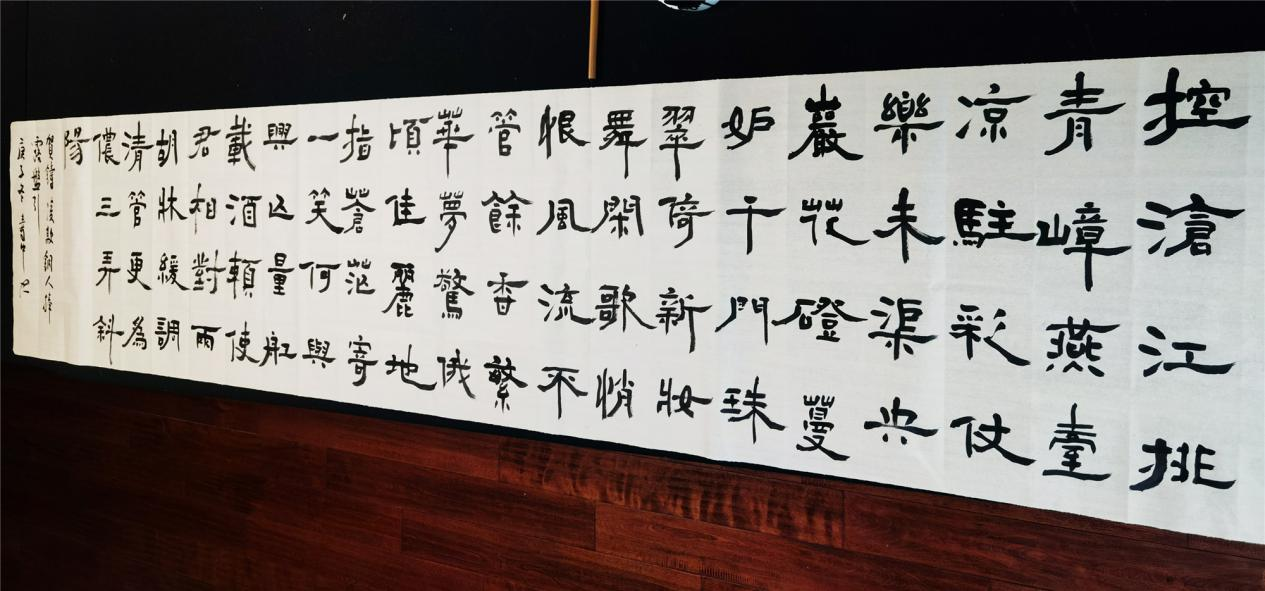 控滄江排
青嶂燕臺
凉駐彩仗
樂未渠央
巖花磴蔓
妒千門珠
翠倚新妝
舞閑歌悄
恨風流不
管餘香繁
華夢驚俄
頃佳麗地
指蒼茫寄
一笑何與
興亡量船
載酒賴使
君相對兩
胡牀緩調
清管更為
儂三弄斜
陽
賀鑄凌歊銅人捧
露盤引
庚子冬